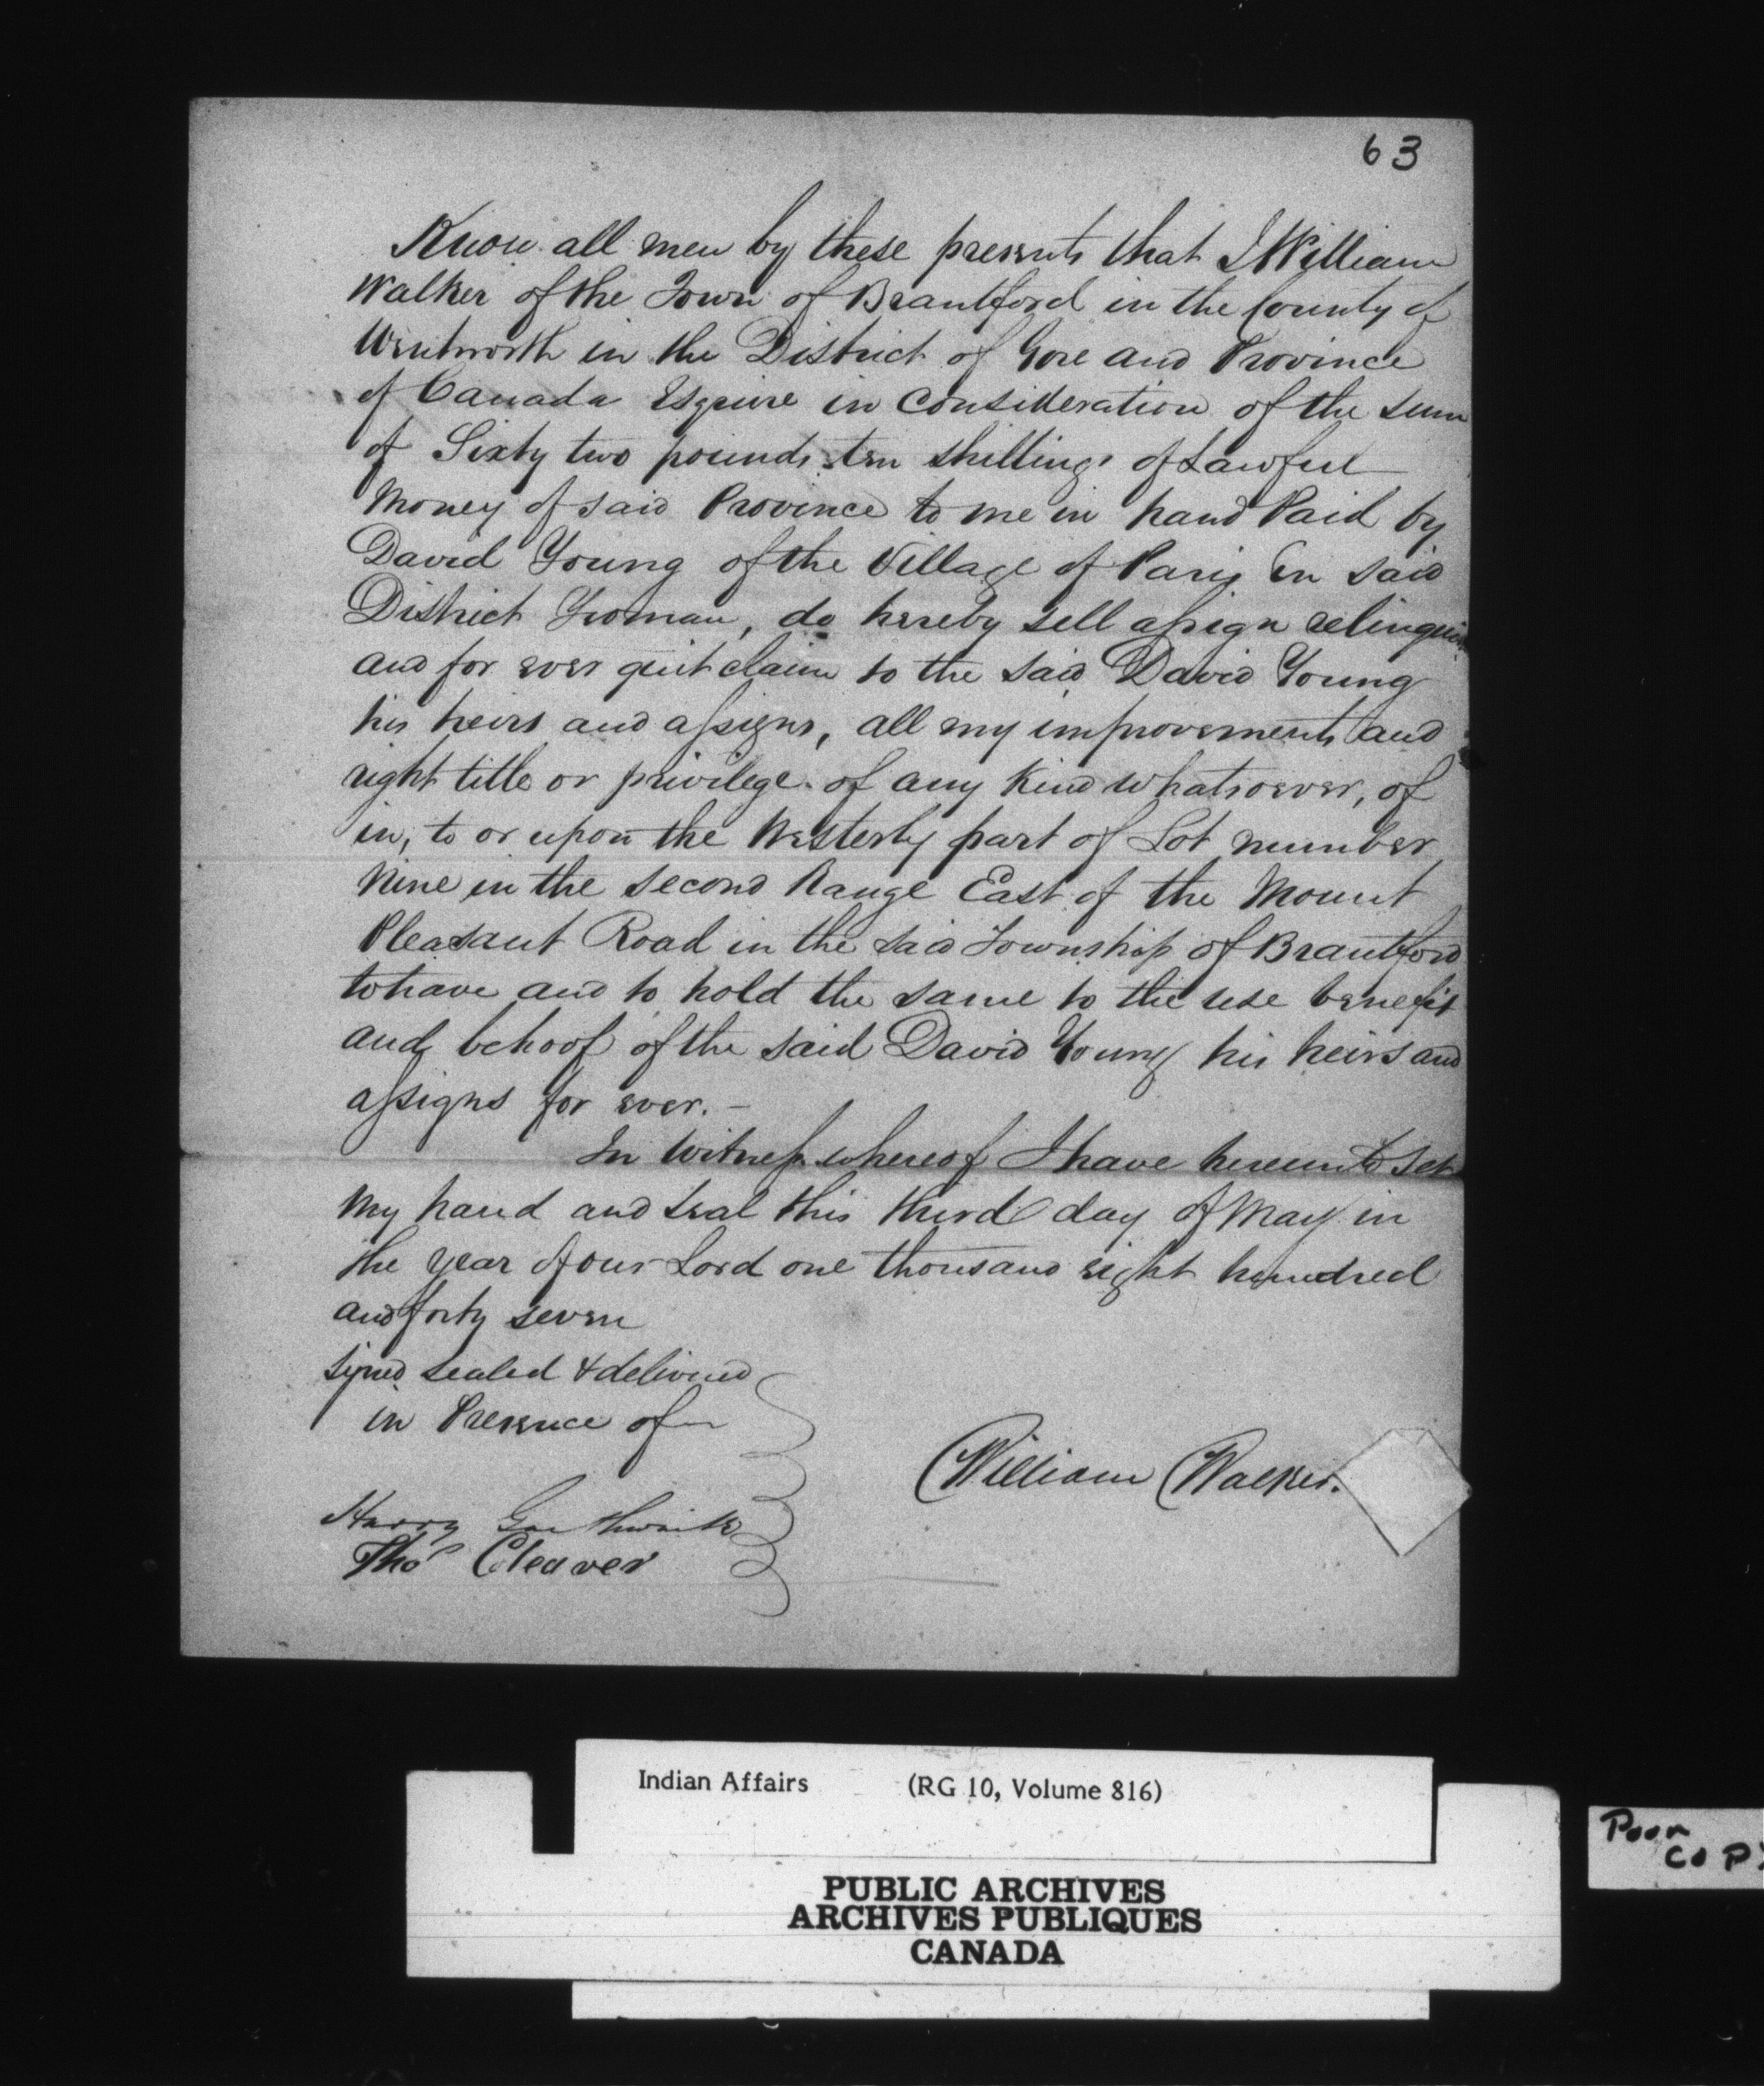 63
Know all men by these presents that I William
Walker of the Town of Brantford in the County of
Wentworth in the District of Gore and Province
of Canada Esquire in consideration of the sum
of Sixty two pounds ten shillings of Lawful
Money of said Province to me in hand Paid by
David Young of the Village of Paris in said
District Yeoman, do hereby sell assign relinquish
and for ever quit claim to the said David Young
his heirs and assigns, all my improvements and
right title or privilege of any Kind whatsoever, of
in, to or upon the Westerly part of Lot number
Nine in the second Range East of the Mount
Pleasant Road in the said Township of Brantford
to have and to hold the same to the use benefit
and behoof of the said David Young his heirs and
assigns for ever. -
In Witness whereof I have hereunto set
my hand and seal this third day of May in
the year of our Lord one thousand eight hundred
and forty seven
Signed sealed & delivered
in Presence of
William Walker.
Harry
Thos Cleaver
Indian Affairs (RG 10, Volume 816)
PUBLIC ARCHIVES
ARCHIVES PUBLIQUES
CANADA
Poor
COPY